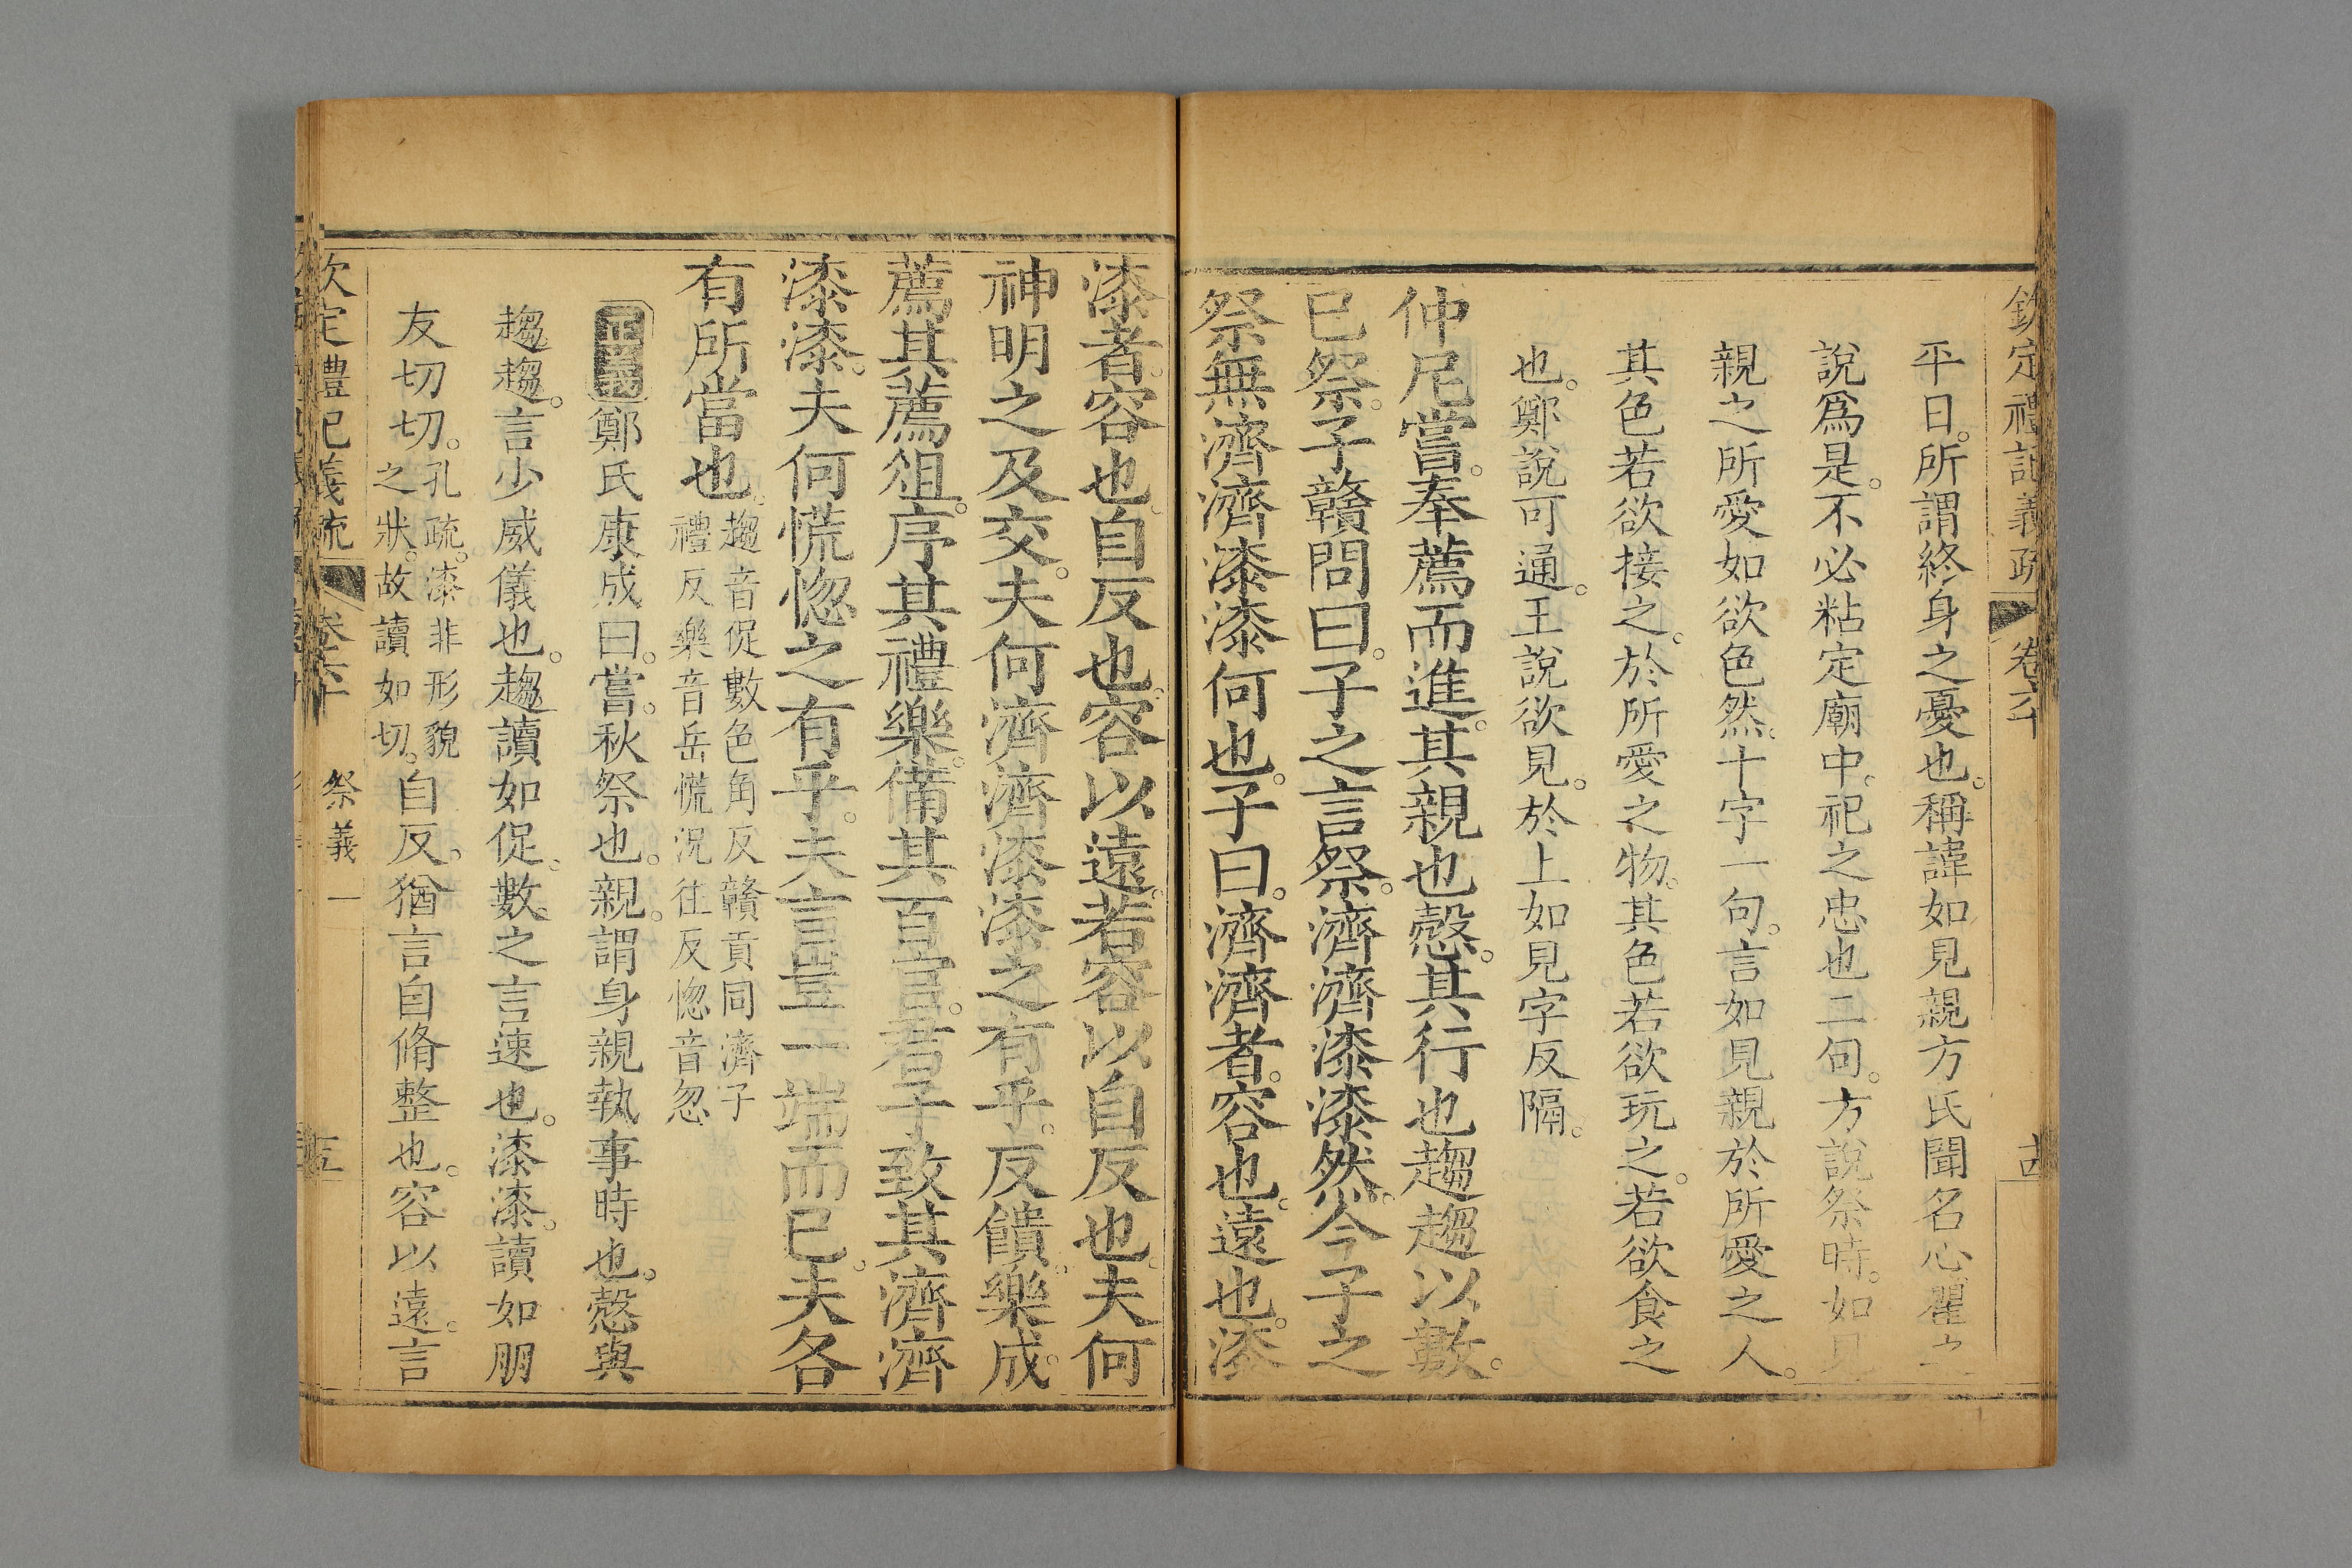 欽定禮記義疏 卷六十 古
平日。所謂終身之憂也。稱諱如見親方氏聞名心瞿之
說爲是。不必粘定廟中。祀之忠也二句。方說祭時。如見
親之所愛如欲色然。十字一句。言如見親於所愛之人。
其色若欲接之。於所愛之物。其色若欲玩之。若欲食之
也。鄭說可通。王說欲見。於上如見字反隔。
仲尼嘗。奉薦而進。其親也慤。其行也趨趨以數。
巳祭。子贛問曰。子之言祭。濟濟漆漆然。今子之
祭無濟濟漆漆何也。子曰。濟濟者。容也。遠也。漆
漆者。容也。自反也。容以遠。若容以自反也。夫何
神明之及交。夫何濟濟漆漆之有乎。反饋。樂成。
薦其薦俎。序其禮樂。備其百官。君子致其濟濟
漆漆。夫何慌惚之有乎。夫言豈一端而已。夫各
有所當也。
趨音促數色角反贛貢同濟子
禮反樂音岳慌況往反惚音忽
正義鄭氏康成曰。嘗。秋祭也。親。謂身親執事時也。慤與
趨趨。言少威儀也。趨讀如促。數。之言速也。漆漆。讀如朋
友切切。
孔疏。漆非形貌
之狀。故讀如切。
自反。猶言自脩整也。容以遠。言
欽定禮記義疏 卷六十 祭義一 五